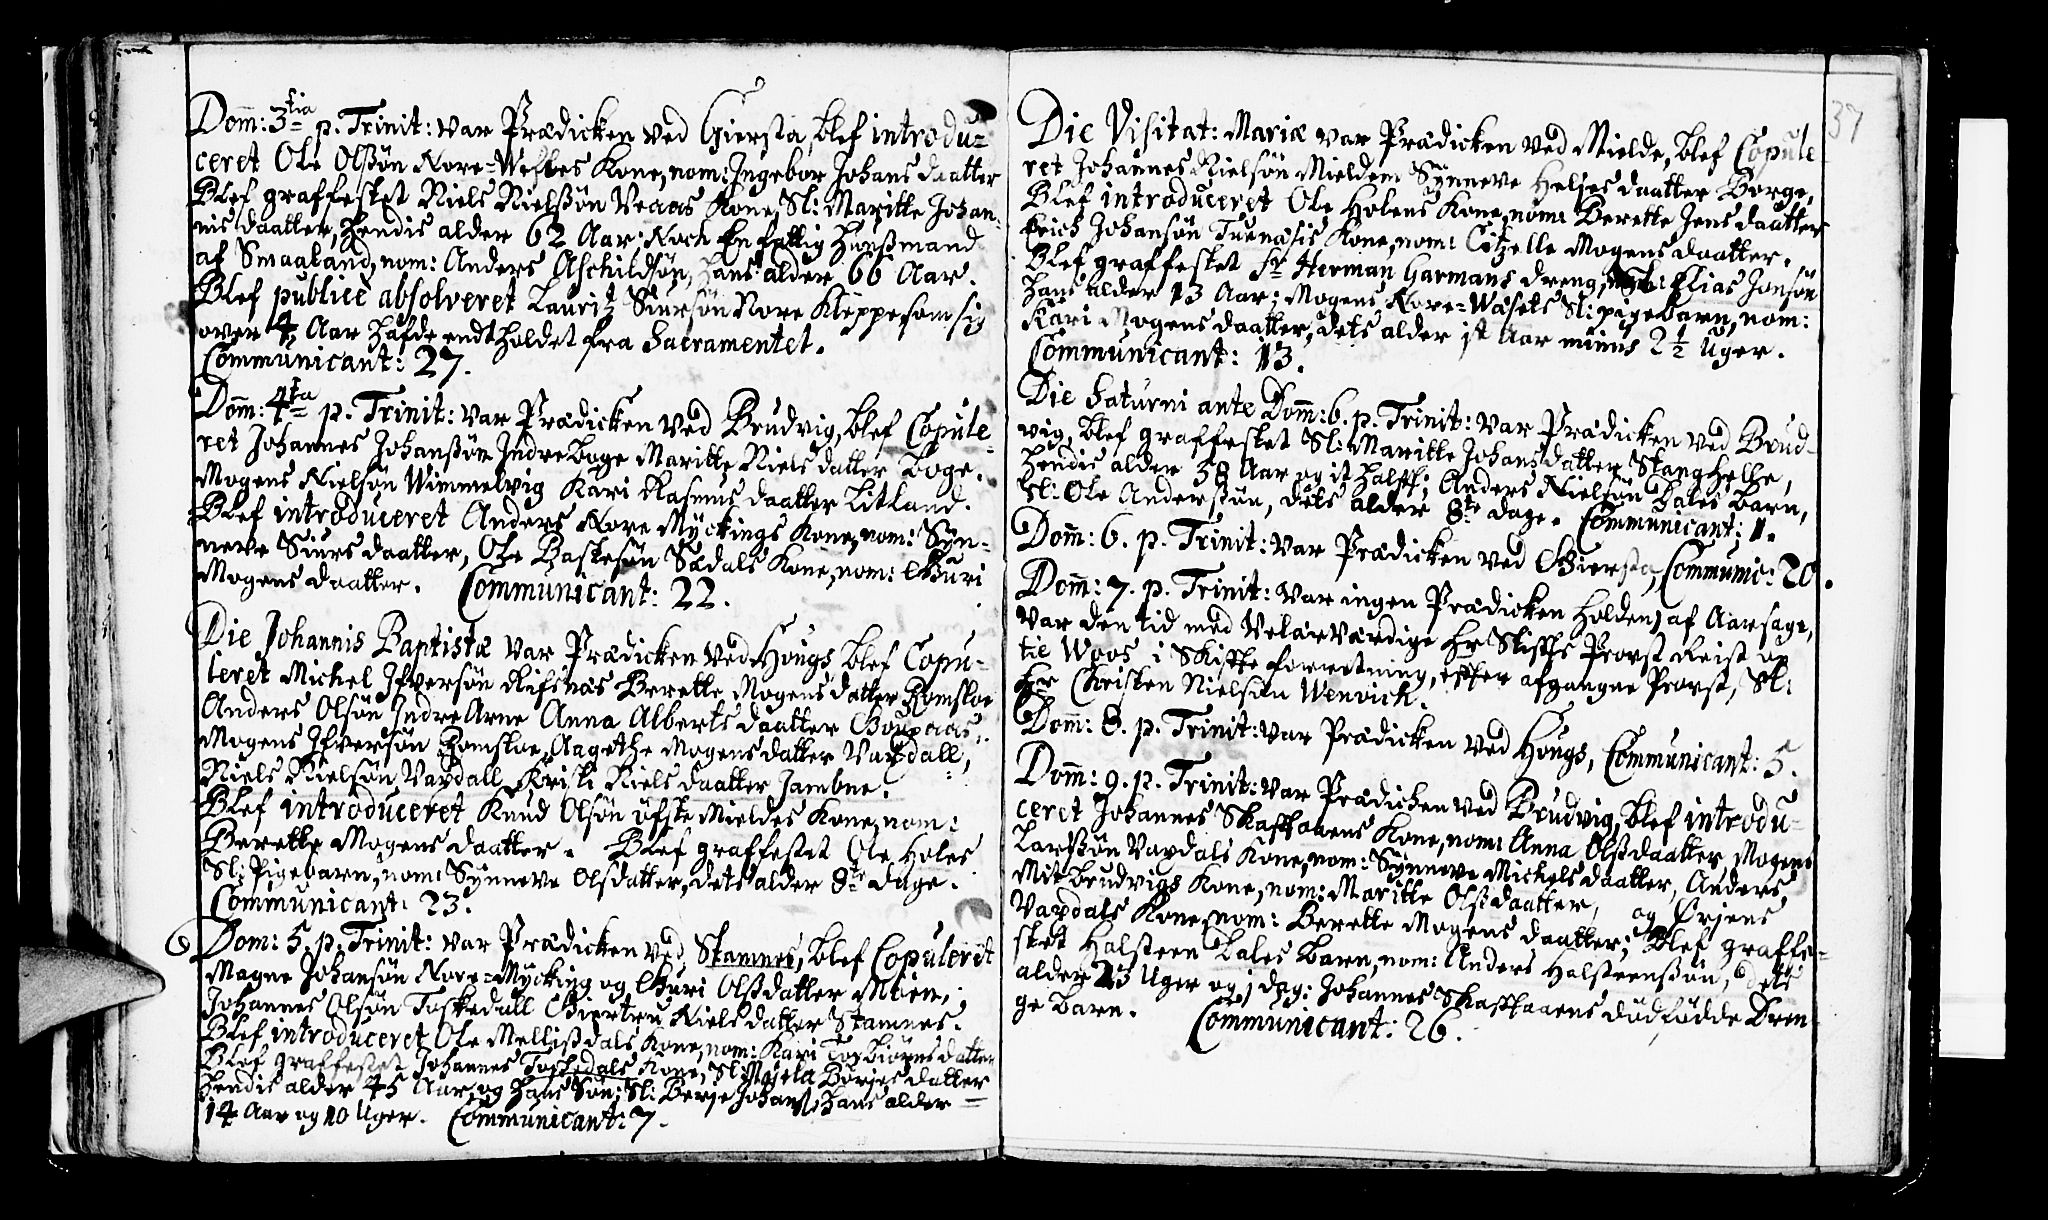 Dom̄: 3tia p. Trinit: var Prædicken ved Giersta, blef introdu=
ceret Ole Olßøn Nore=Weftes Kone, nom: Ingebor Johans daatter
Blef graffestet Niels Nielßøn Veaas Kone, Sl: Maritte Johan-
nis daatter, hendis alder 62 Aar. Noch En fattig Hußmand
af Smaaland, nom: Anders Aschildsøn, hans alder 66 Aar.
Blef publicè absolveret Lauritz Siursøn Nore Kleppe som sig
over 4 Aar hafde endtholdet fra Sacramentet.
Communicant: 27.
Dom̄: 4ta p. Trinit: var Prædicken ved Brudvig, blef Copule-
ret Johannes Johanßøn Indre Boge Maritte Niels datter Boge.
Mogens Nielsøn Wimmelvig Kari Rasmus daatter Litland.
Blef introduceret Anders Nore Myckings Kone, nom: Syn-
neve Siurs daatter, Ole Baskesøn Sædals Kone, nom: Guri
Mogens daatter. Communicant: 22.
Die Johannis Baptistæ var Prædicken ved Hougs blef Copu-
leret Michel Ifversøn Rifsnæs Berette Mogens datter Romsloe
Anders Olsøn Indre Arne Anna Alberts daatter
Mogens Ifversøn Romsloe, Aagethe Mogens datter Vaxdall,
Niels Nielsøn Vaxdall Kristi Niels daatter Jambne.
Blef introduceret Knud Olsøn øfste Mieldes Kone, nom:
Berette Mogens daatter. Blef graffestet Ole Holes
Sl: Pigebarn, nom: Synneve Olsdatter, dets alder 8te dage.
Communicant: 23.
Dom: 5. p. Trinit: var Prædicken ved Stamnes, blef Copuleret
Magne Johansøn Nore=Mycking og Guri Olßdatter Moen,
Johannes Olsøn Toskedall Giertru Niels datter Stamnes.
Blef introduceret Ole Mellißdals Kone, nom: Kari Torbiørns datter
Blef graffestet Johannes Toskedals Kone, Sl: Børjes datter
hendis alder 45 Aar, og hans Søn, Sl: Berje Johanß: hans alder
14 Aar og 10 Uger. Communicant: 7.
37
Die Visitat: Mariæ var Prædicken ved Mielde, blef Copule-
ret Johannes Nielsøn Mieldem Synneve Heljes daatter Borge,
Blef introduceret Ole Holens Kone, nom: Berette Jens daatter
Erich Johansøn Tuenæsis Kone, nom: Citzelle Mogens daatter.
Blef graffestet Sr Herman Garmans dreng, Elias Jonsøn
hans alder 13 Aar; Mogens Nore=Wasets Sl: pigebarn, nom:
Kari Mogens daatter, dets alder it Aar minus 2½ Uger.
Communicant: 13.
Die Saturni ante Dom̄: 6. p. Trinit: var Prædicken ved Brud-
vig, blef graffestet Sl: Maritte Johans datter Stanghelle,
hendis alder 38 Aar og it halft; Anders Nielsøn Dales barn,
Sl: Ole Anderßøn, dets alder 8te dage. Communicant: 1.
Dom̄: 6. p. Trinit: var Prædicken ved Giersta, Communic: 20.
Dom̄: 7. p. Trinit: var ingen Prædicken holden, af Aarsage,
var den tid med Velærværdige Hr Stifts Provst Reist op
til Woos i Skifte forretning, effter afgangne Provst, Sl:
Hr Christen Nielsøn Wenvich.
Dom̄: 8. p. Trinit: var Prædicken ved Hougs, Communicant: 5.
Dom̄: 9. p. Trinit: var Prædicken ved Brudvig, blef introdu-
ceret Johannes Skaftaaens Kone, nom: Anna Olßdaatter, Mogens
Larßøn Vaxdals Kone, nom: Synneve Michels daatter, Anders
Mit Brudvigs Kone, nom: Maritte Olßdaatter, og Ørjens
Vaxdals Kone, nom: Berette Mogens daatter; Blef graffe-
sket Halsteen Dales barn, nom: Anders Halsteenßøn, dets
alder 23 Uger og 1 dag: Johannes Skaftaaens dødfødde Dren-
ge barn. Communicant: 26.